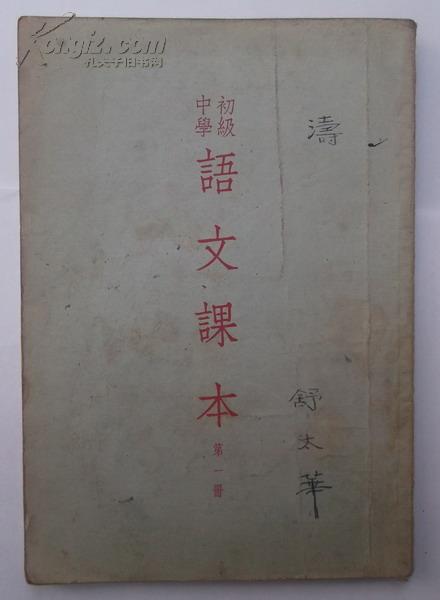 Kongfz.com
孔夫子旧书网
初級
中學
語文課本
第一冊
濤
舒太華